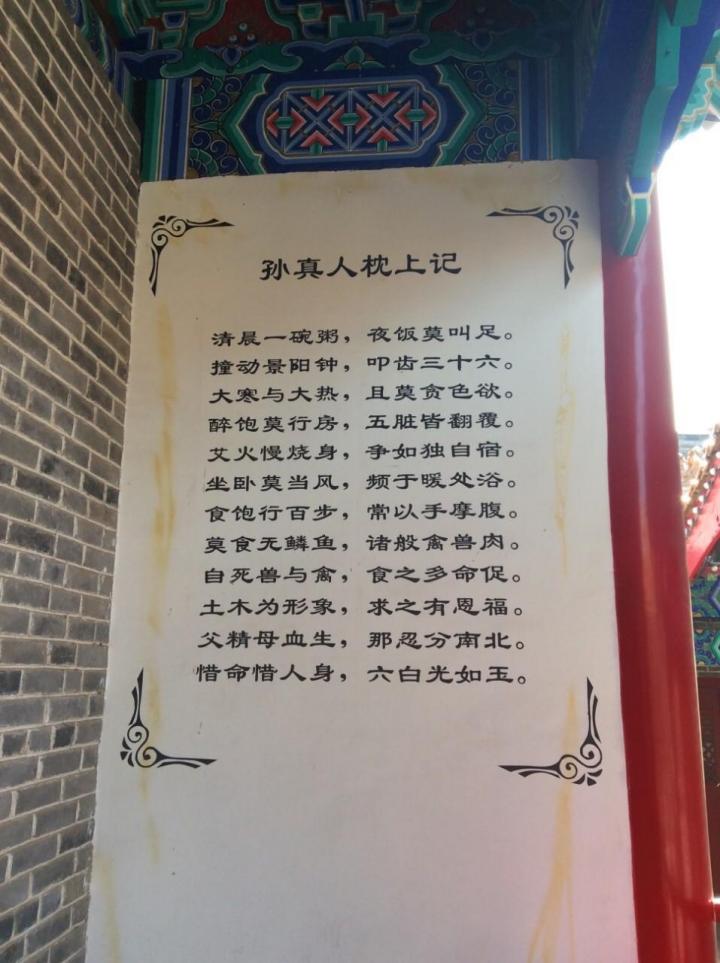 孙真人枕上记
清晨一碗粥，夜饭莫叫足。
撞动景阳钟，叩齿三十六。
大寒与大热，且莫贪色欲。
醉饱莫行房，五脏皆翻覆。
艾火慢烧身，争如独自宿。
坐卧莫当风，频于暖处浴。
食饱行百步，常以手摩腹。
莫食无鳞鱼，诸般禽兽肉。
自死兽与禽，食之多命促。
土木为形象，求之有恩福。
父精母血生，那忍分南北。
惜命惜人身，六白光如玉。